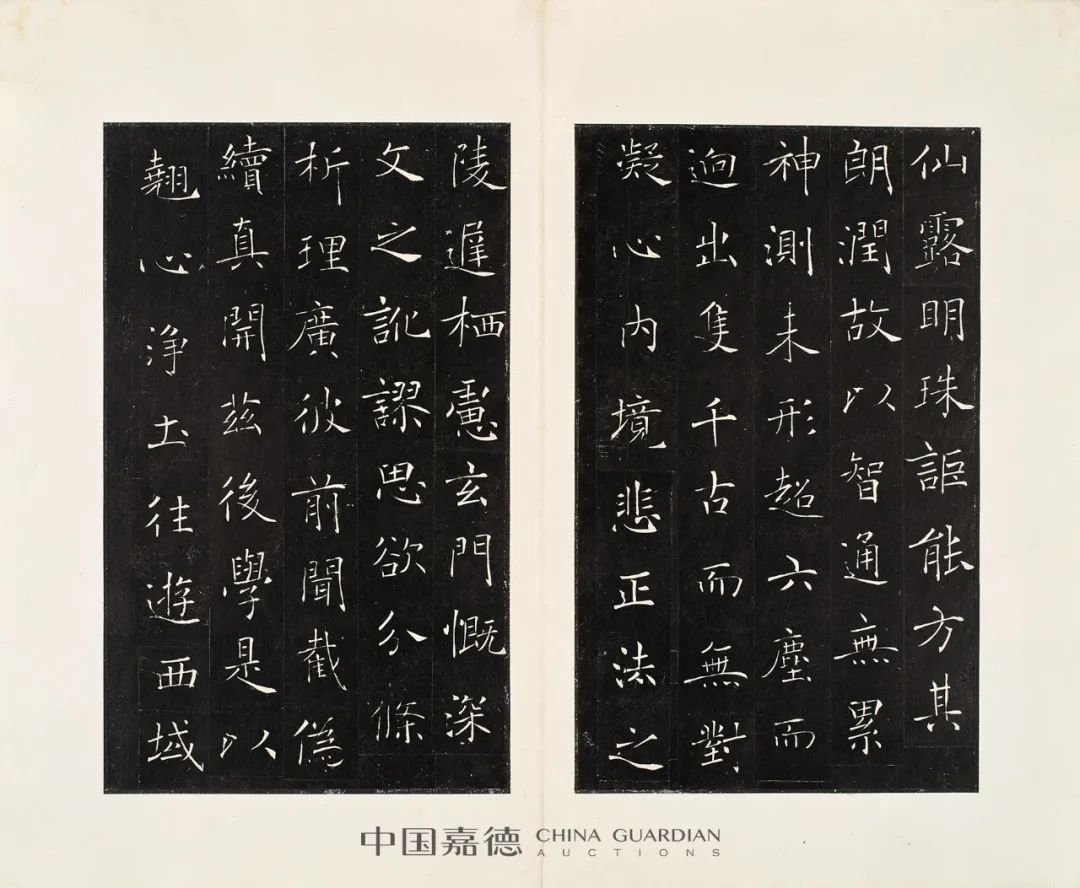 仙露明珠詎能方其
朗潤故以智通無累
神測未形超六塵而
迥出隻千古而無對
凝心內境悲正法之
陵遲栖慮玄門慨深
文之訛謬思欲分條
析理廣彼前聞截偽
續真開茲後學是以
翹心淨土往遊西域
中国嘉德 CHINA GUARDIAN
AUCTIONS